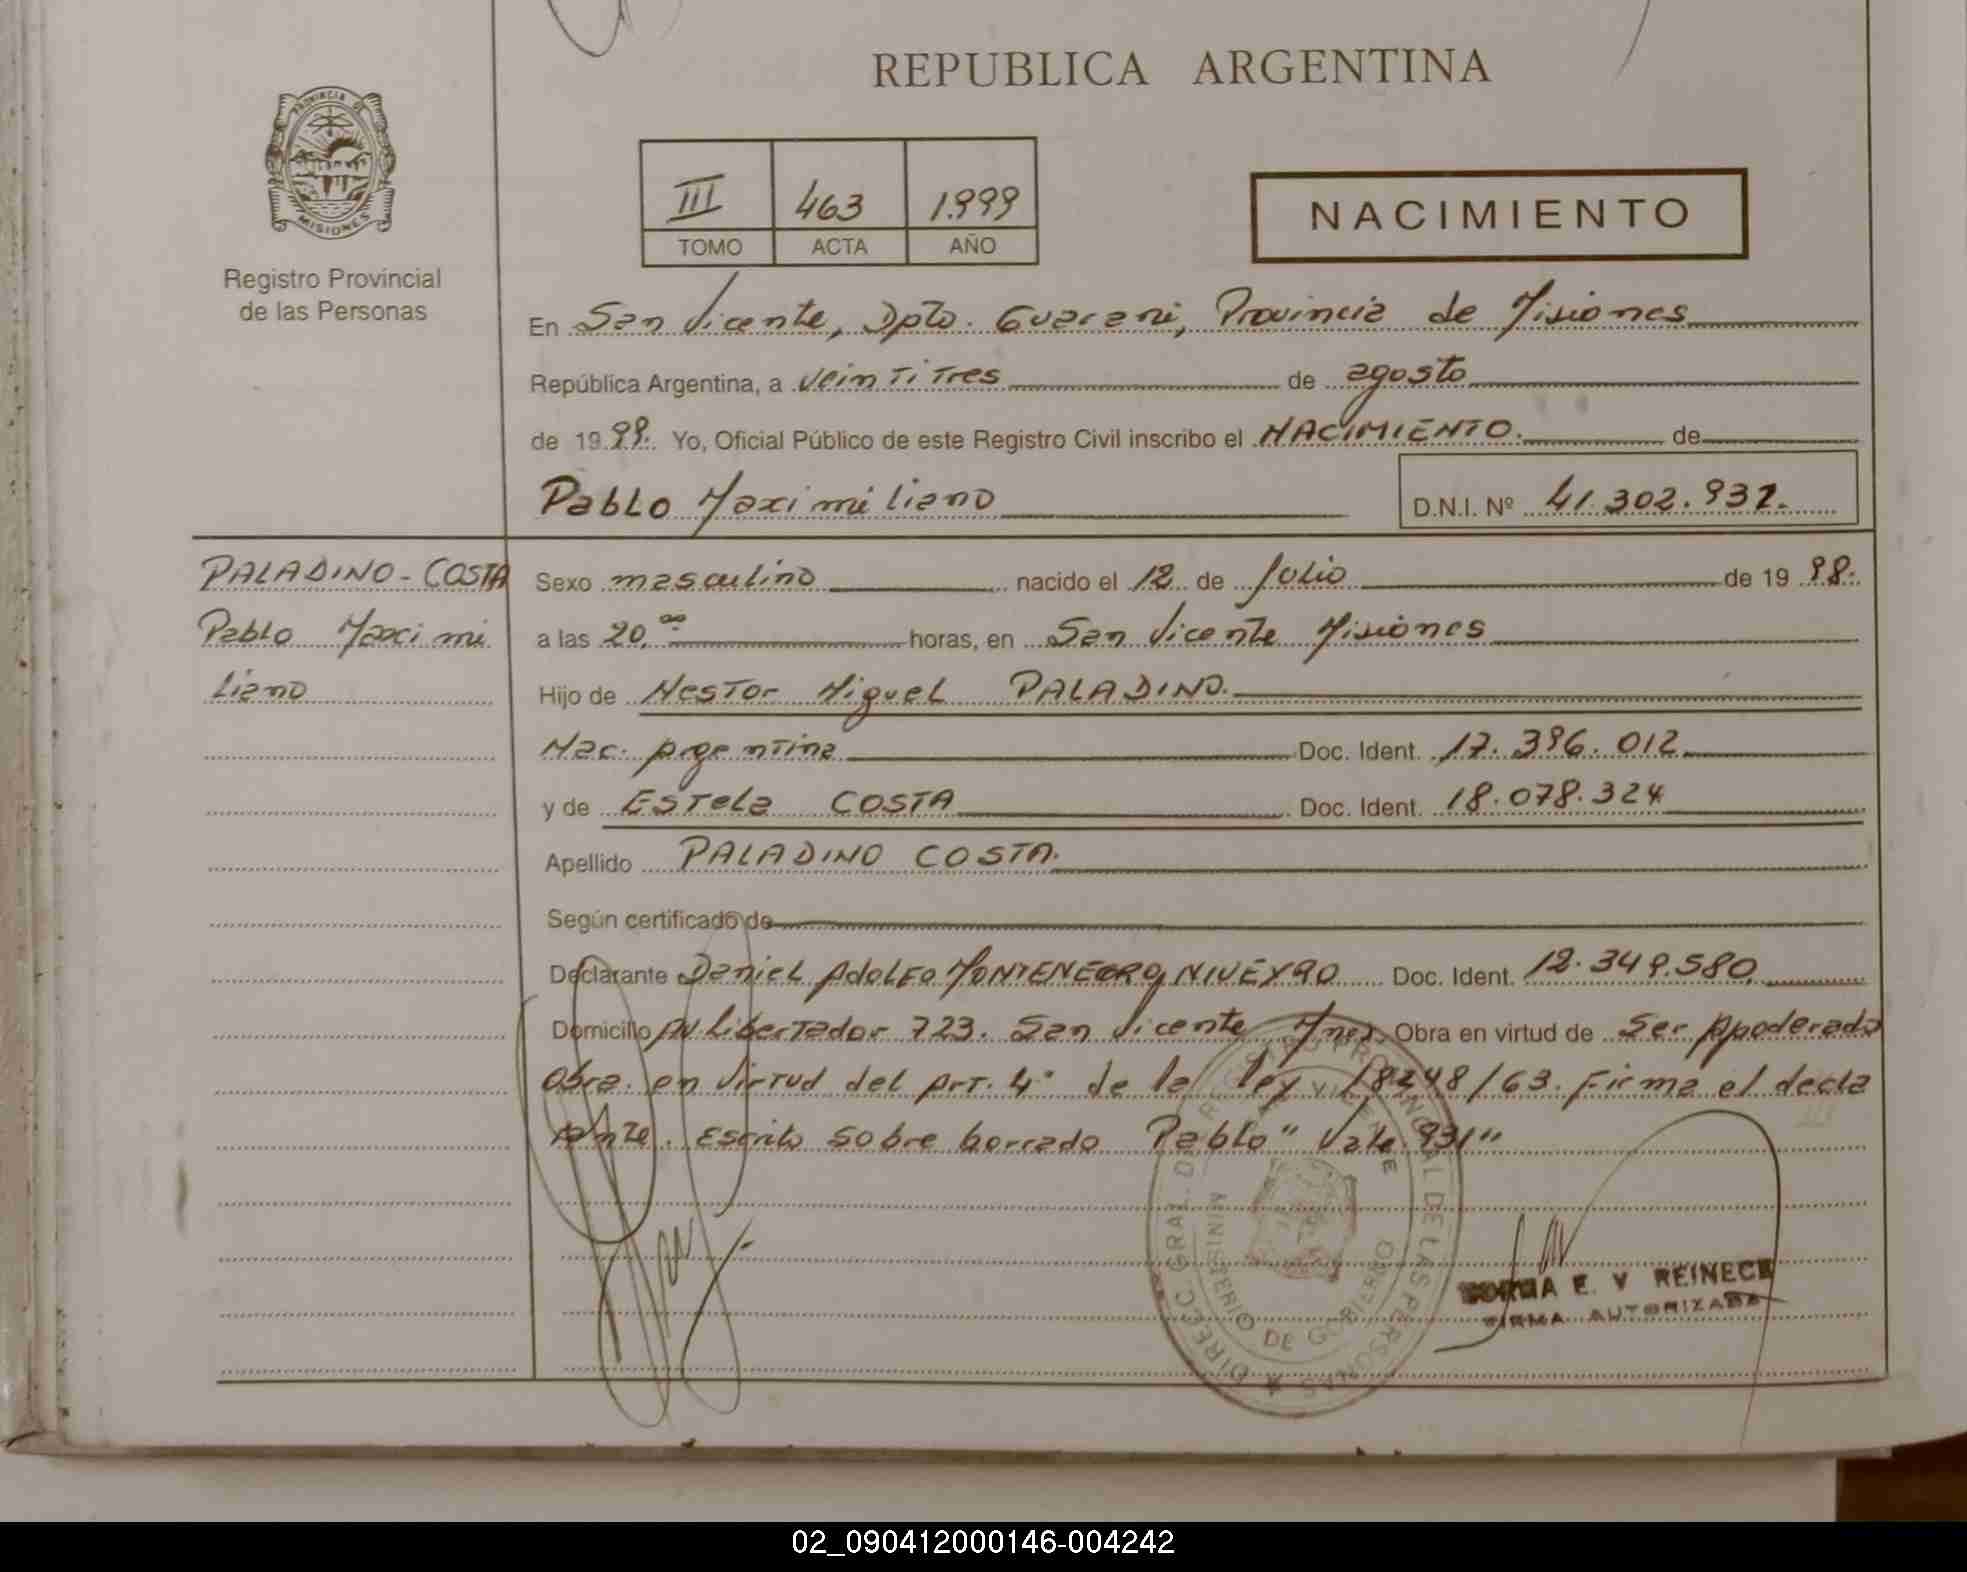 REPUBLICA ARGENTINA
PROVINCIA DE
MISIONES
Registro Provincial
de las Personas
III 463 1.999
TOMO ACTA AÑO
NACIMIENTO
En San Vicente, Dpto. Guarani, Provincia de Misiones
República Argentina, a veintitres de agosto
de 1999. Yo, Oficial Público de este Registro Civil inscribo el NACIMIENTO. de
Pablo Maximiliano D.N.I. Nº 41.302.931.
PALADINO-COSTA
Pablo Maximi
liano
Sexo masculino nacido el 12 de Julio de 1998.
a las 20,00 horas, en San Vicente Misiones
Hijo de Nestor Miguel PALADINO.
Nac. Argentina Doc. Ident. 17.396.012
y de Estela COSTA Doc. Ident. 18.078.324
Apellido PALADINO COSTA.
Según certificado de
Declarante Daniel Adolfo MONTENEGRO NIVEYRO Doc. Ident. 12.349.580.
Domicilio Av. Libertador 723. San Vicente Mnes. Obra en virtud de Ser Apoderado
Obra en virtud del Art. 4º de la ley 18248/63. Firma el decla
rante. Escrito sobre borrado Pablo" Vale. 931"
DIRECC. GRAL. DEL REGISTRO PROVINCIAL DE LAS PERSONAS
SAN VICENTE
MINISTERIO DE GOBIERNO
E. V REINECK
FIRMA AUTORIZADA
02_090412000146-004242